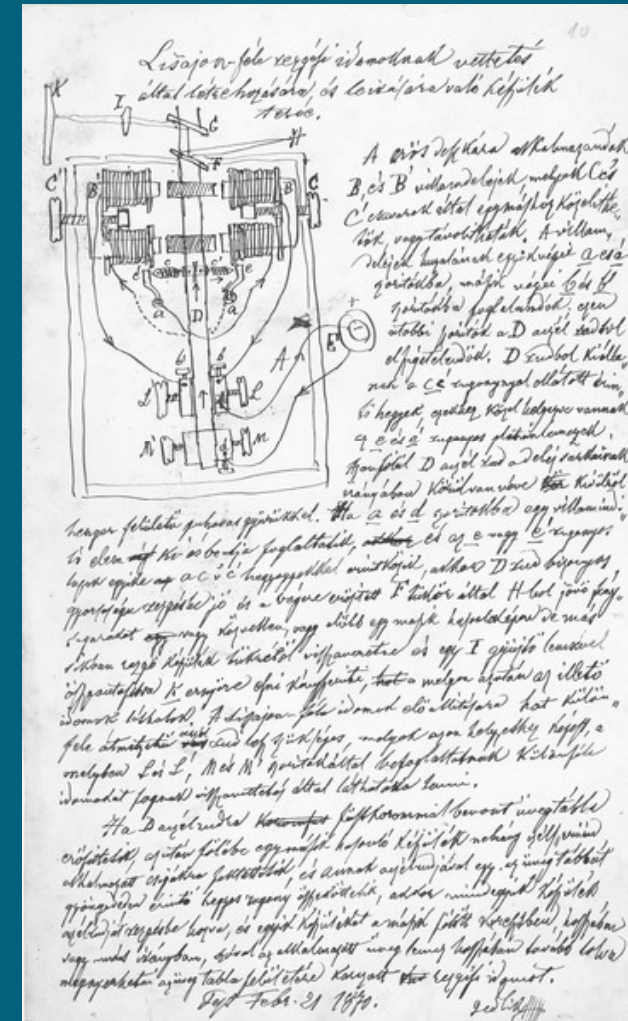 10
Lisajou-féle rezgési idomoknak vettetés
által létrehozására, és leírására való készülék
terve.
K I G H
F
A erős deszkára alkalmazandók
C' B' B C
B, és B' villamdelejek melyek C és
C' csavarok által egymáshoz közelithe-
tők, vagy távolíthatók. A villam
delejek huzalainak egyik végei a és á
d c c' e
szorítókba, másik végei b és b'
a a
szorítókba foglalandók, ezen
D
utóbbi szorítók a D aczél rudtól
+
E
elszigetelendők. D rudból kiálla-
A
b b
nak a cc' rugonynyal ellátott érin-
L L
tő hegyek, ezekhez közel helyezve vannak
M' M
az e és é rugonyos platinlemezek.
d
D aczél rud a delej sarkainak
irányában körül van véve kívülről
henger felületű puhavas gyűrűkkel. Ha a és d szorítókba egy villamindí-
tó elem ki és bentje foglaltatik, és az e vagy é rugonyos
lapok egyike a c v c' hegyekkel érintkezik, akkor D rud bizonyos
gyorsaságu rezgésbe jő és a végére erősített F tükör által H-ból jövő fény-
sugarakat vagy közvetlen, vagy előbb egy másik hasonlóképen de más
síkban rezgő készülék tükréről visszaveretve és egy I gyűjtő lencsével
összpontosítva K ernyőre esni kényszeríti, a melyen azután az illető
idomok láthatók. A Lisajou-féle idomok előállítására hat külön-
féle átmérőjű aczél rud lesz szükséges, melyek azon helyekhez képest, a
melyben L és L', M és M' szorítók által befoglaltatnak különféle
idomokat fognak visszavettetés által láthatókká tenni.
Ha D aczélrudra füstkorommal bevont üvegtábla
erősítetik, azután fölébe egy másik hasonló készülék néhány
alkalmazott csigákra fektettetik, és annak aczélrudjával egy az üvegtáblát
gyöngéden érintő hegyes rugony összeköttetik, akkor mindegyik készülék
aczélrudját rezgésbe hozva, és egyik készüléket a másik fölött keresztben, hosszában
vagy más irányban, szóval az alkalmazott üveg lemez hosszában tovább tolva
megnyerhetni az üveg tábla felületére karczolt rezgési idomot.
Pest Febr. 21 1870.
Jedlik